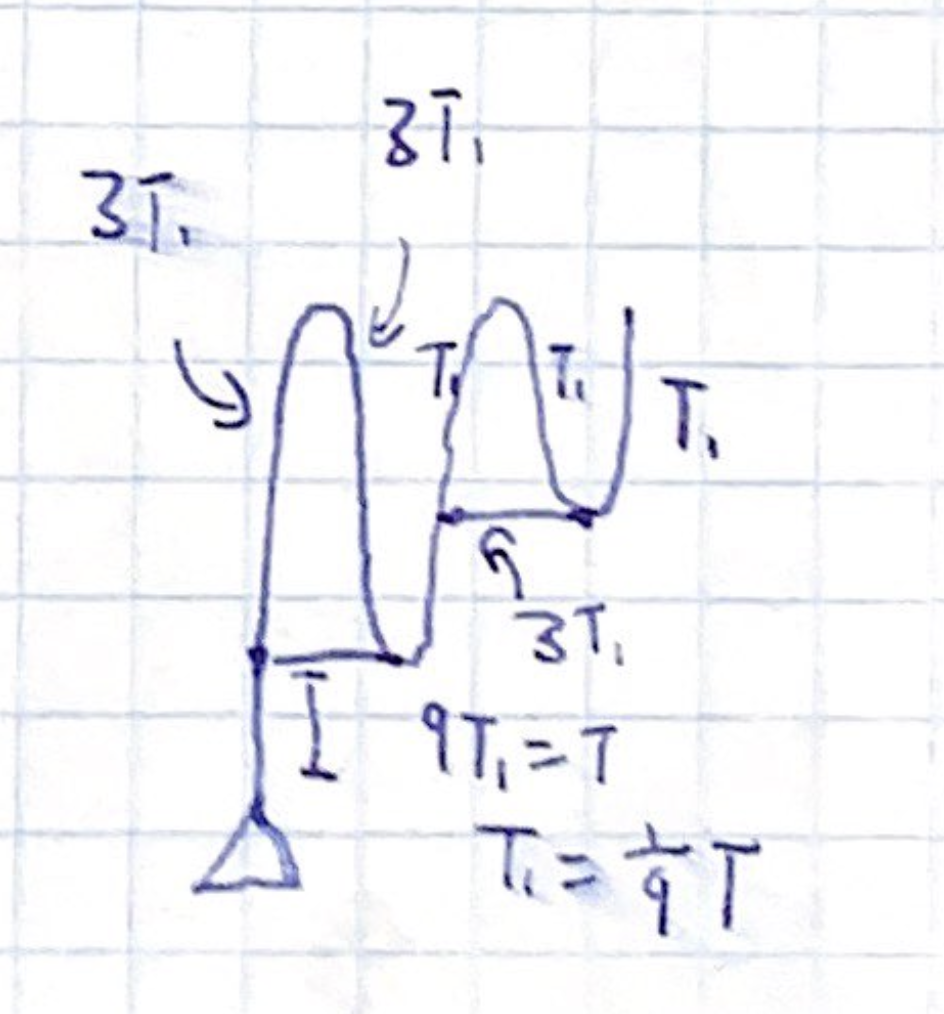 3T₁
3T₁
T₁ T₁ T₁
3T₁
T 9T₁ = T
T₁ = 1/9 T